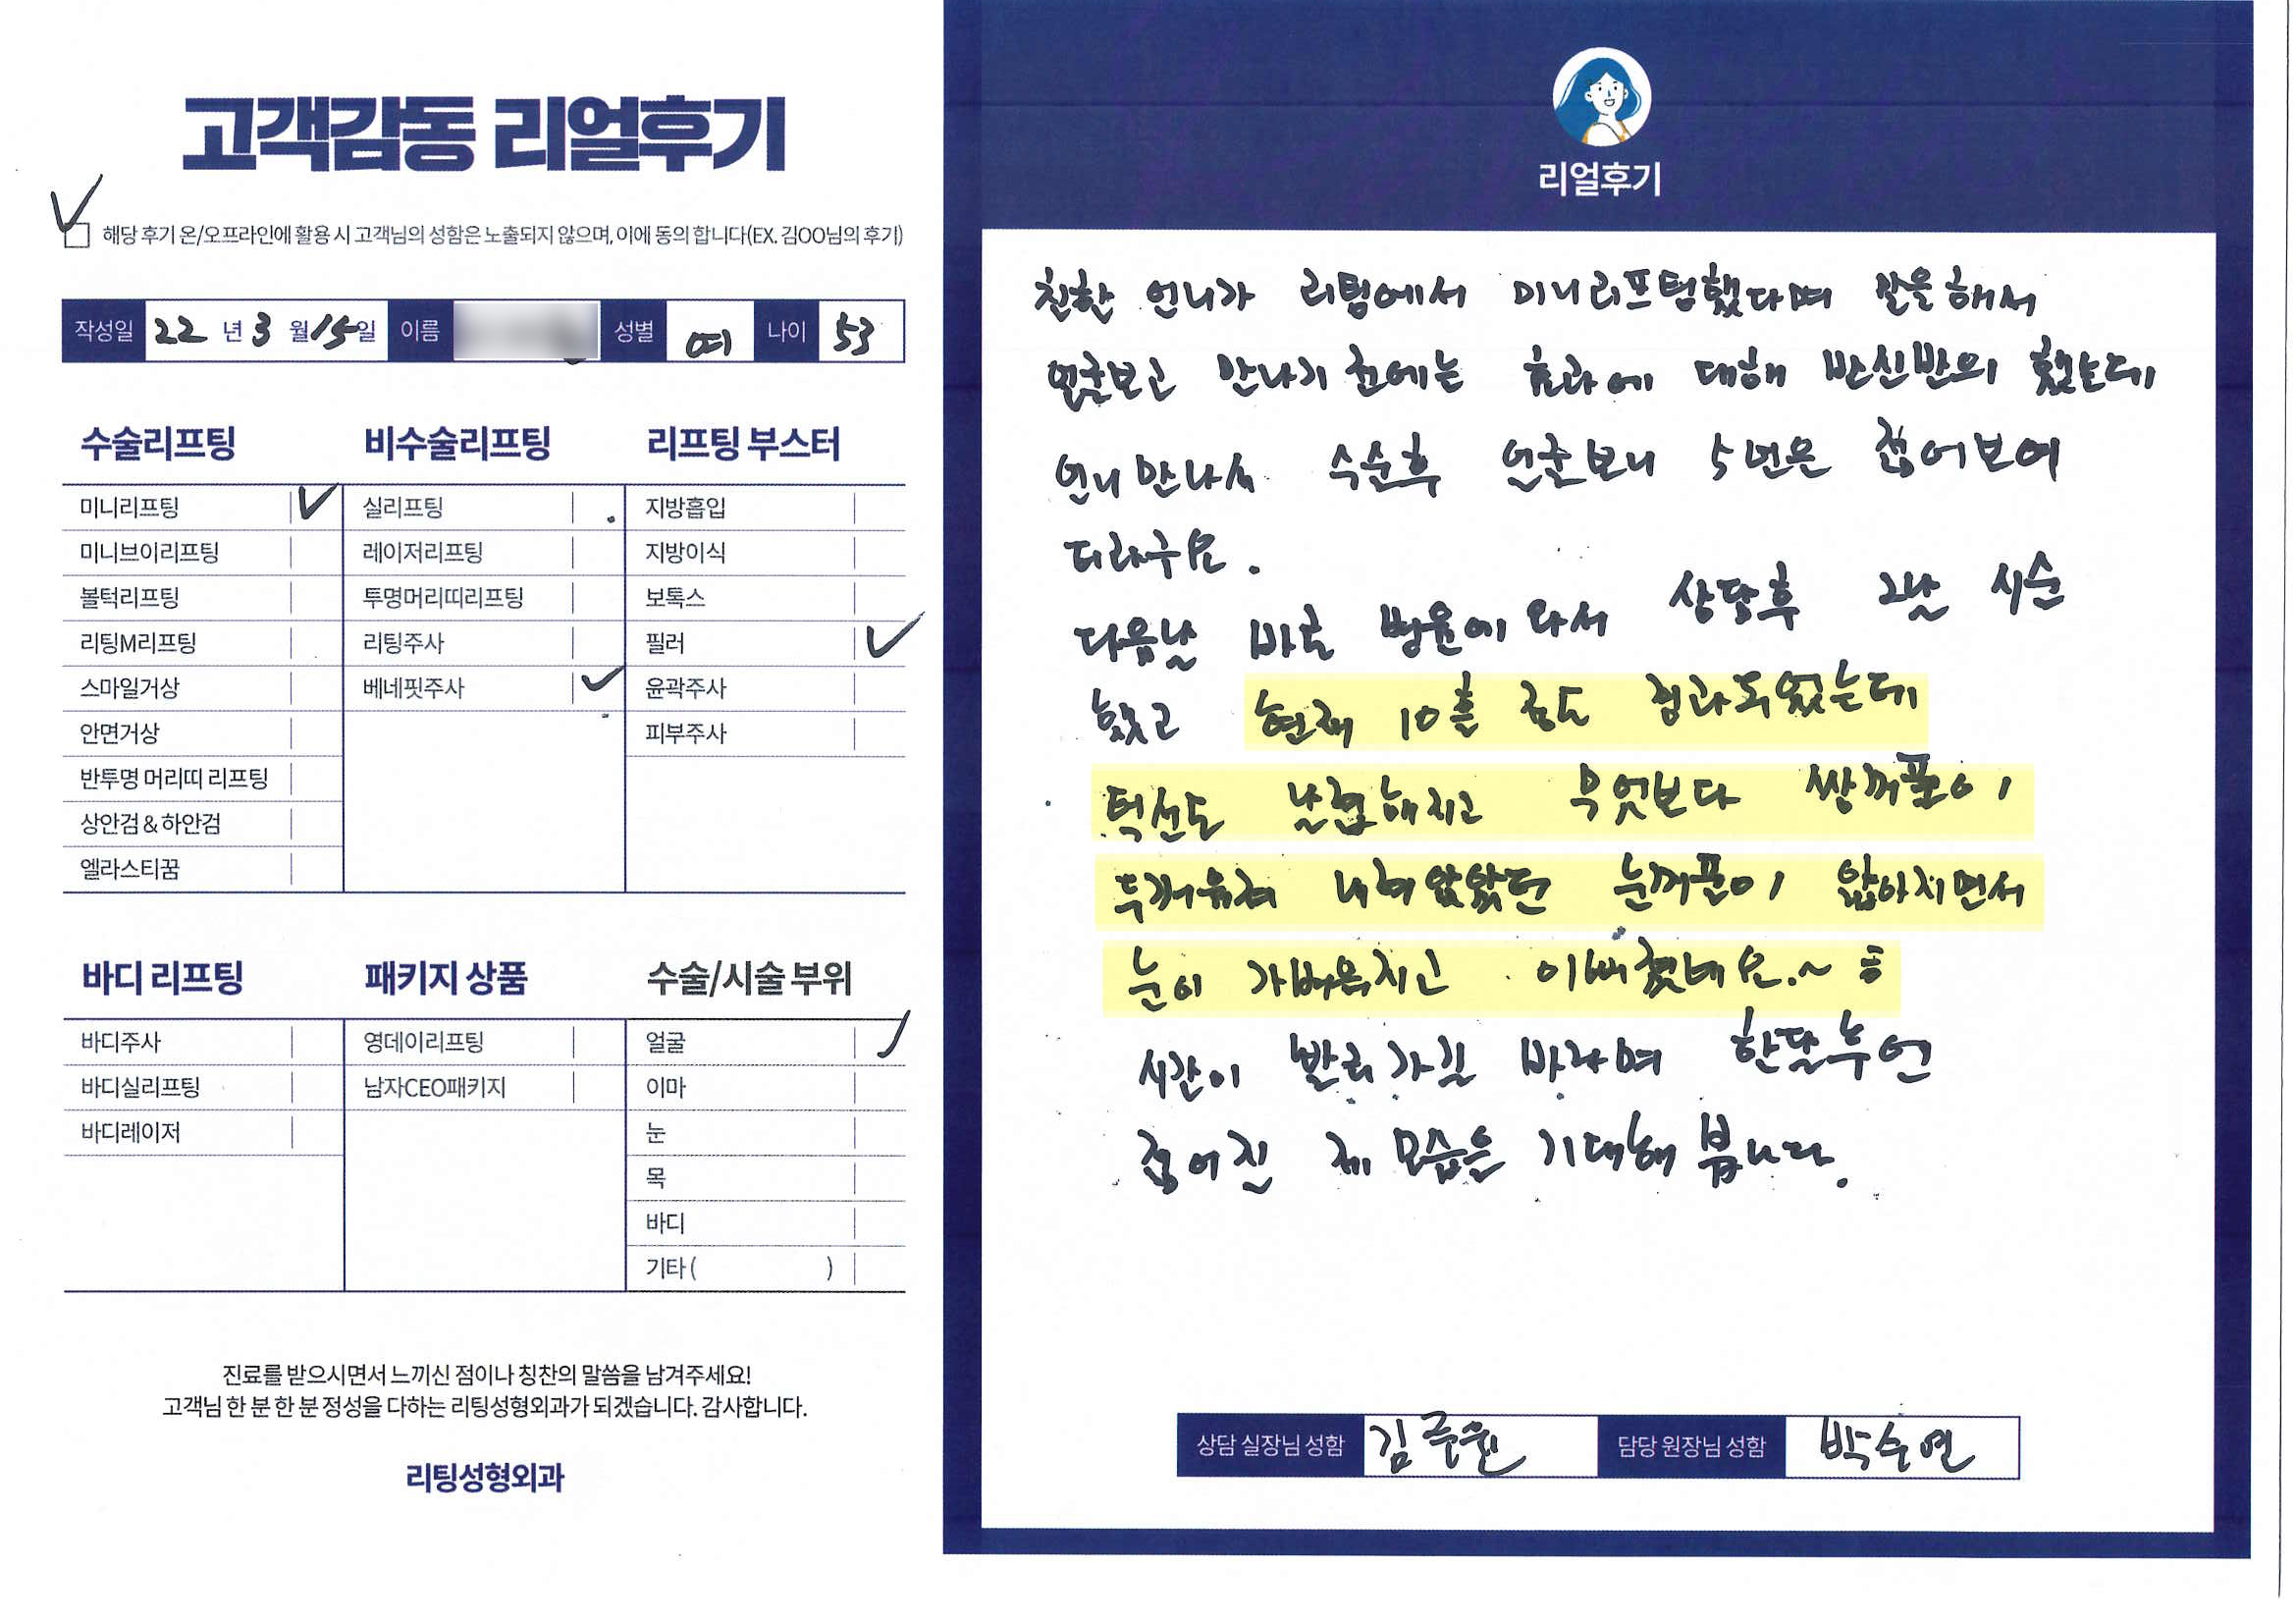 고객감동 리얼후기
해당 후기 온/오프라인에 활용 시 고객님의 성함은 노출되지 않으며, 이에 동의 합니다(EX. 김OO님의 후기)
작성일 22 년 3 월 15일 이름 성별 여 나이 53
수술리프팅
미니리프팅
미니브이리프팅
볼턱리프팅
리팅M리프팅
스마일거상
안면거상
반투명 머리띠 리프팅
상안검 & 하안검
엘라스티꿈
비수술리프팅
실리프팅
레이저리프팅
투명머리띠리프팅
리팅주사
베네핏주사
리프팅 부스터
지방흡입
지방이식
보톡스
필러
윤곽주사
피부주사
바디 리프팅
바디주사
바디실리프팅
바디레이저
패키지 상품
영데이리프팅
남자CEO패키지
수술/시술 부위
얼굴
이마
눈
목
바디
기타 ( )
진료를 받으시면서 느끼신 점이나 칭찬의 말씀을 남겨주세요!
고객님 한 분 한 분 정성을 다하는 리팅성형외과가 되겠습니다. 감사합니다.
리팅성형외과
리얼후기
친한 언니가 리팅에서 미니리프팅했다며 말을해서
얼굴보고 만나기 전에는 효과에 대해 반신반의 했는데
언니만나서 수술후 얼굴보니 5년은 젊어보여
디라구요.
다음날 바로 병원에 와서 상담후 그날 시술
했고 현재 10흘 정도 경과되었는데
턱선도 날렵해지고 무엇보다 쌍꺼풀이
두꺼워져 내려앉았던 눈꺼풀이 얇아지면서
눈이 가벼워지고 이뻐졌네요.~ ㅎ
시간이 빨리가길 바라며 한달후엔
젊어진 제 모습을 기대해 봅니다.
상담 실장님 성함 김주원 담당 원장님 성함 박수연